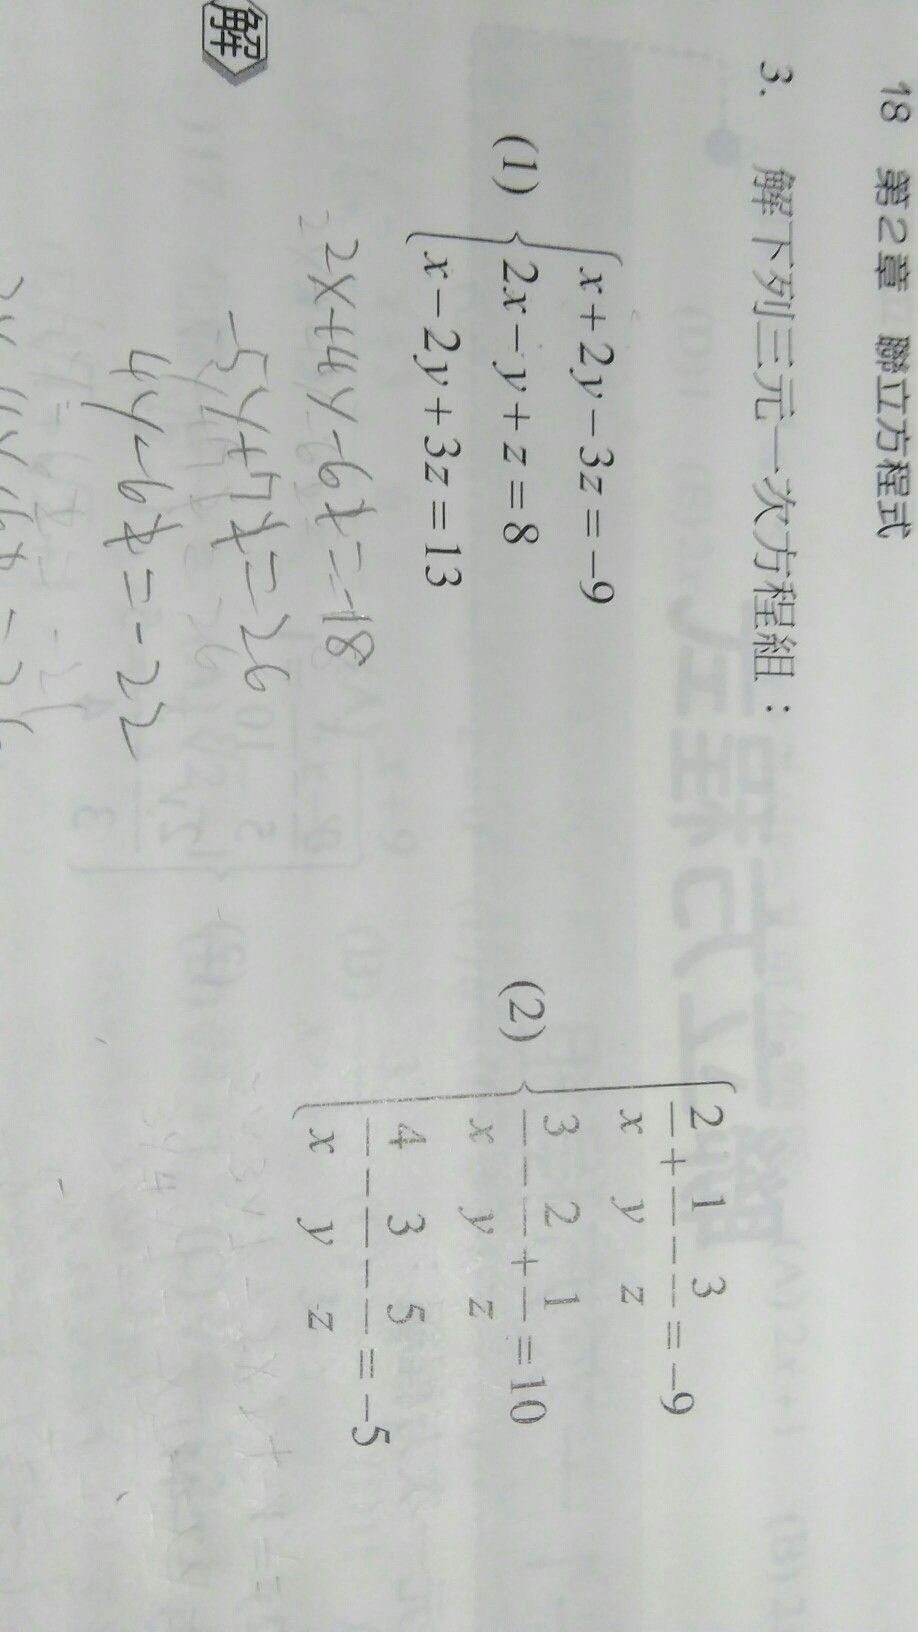 18 第2章 聯立方程式
3. 解下列三元一次方程組：
(1) { x+2y−3z=−9
2x−y+z=8
x−2y+3z=13
(2) { 2/x+1/y−3/z=−9
3/x−2/y+1/z=10
4/x−3/y−5/z=−5
解
2x+4y−6z=−18
−5y+7z=26
4y−6z=−22